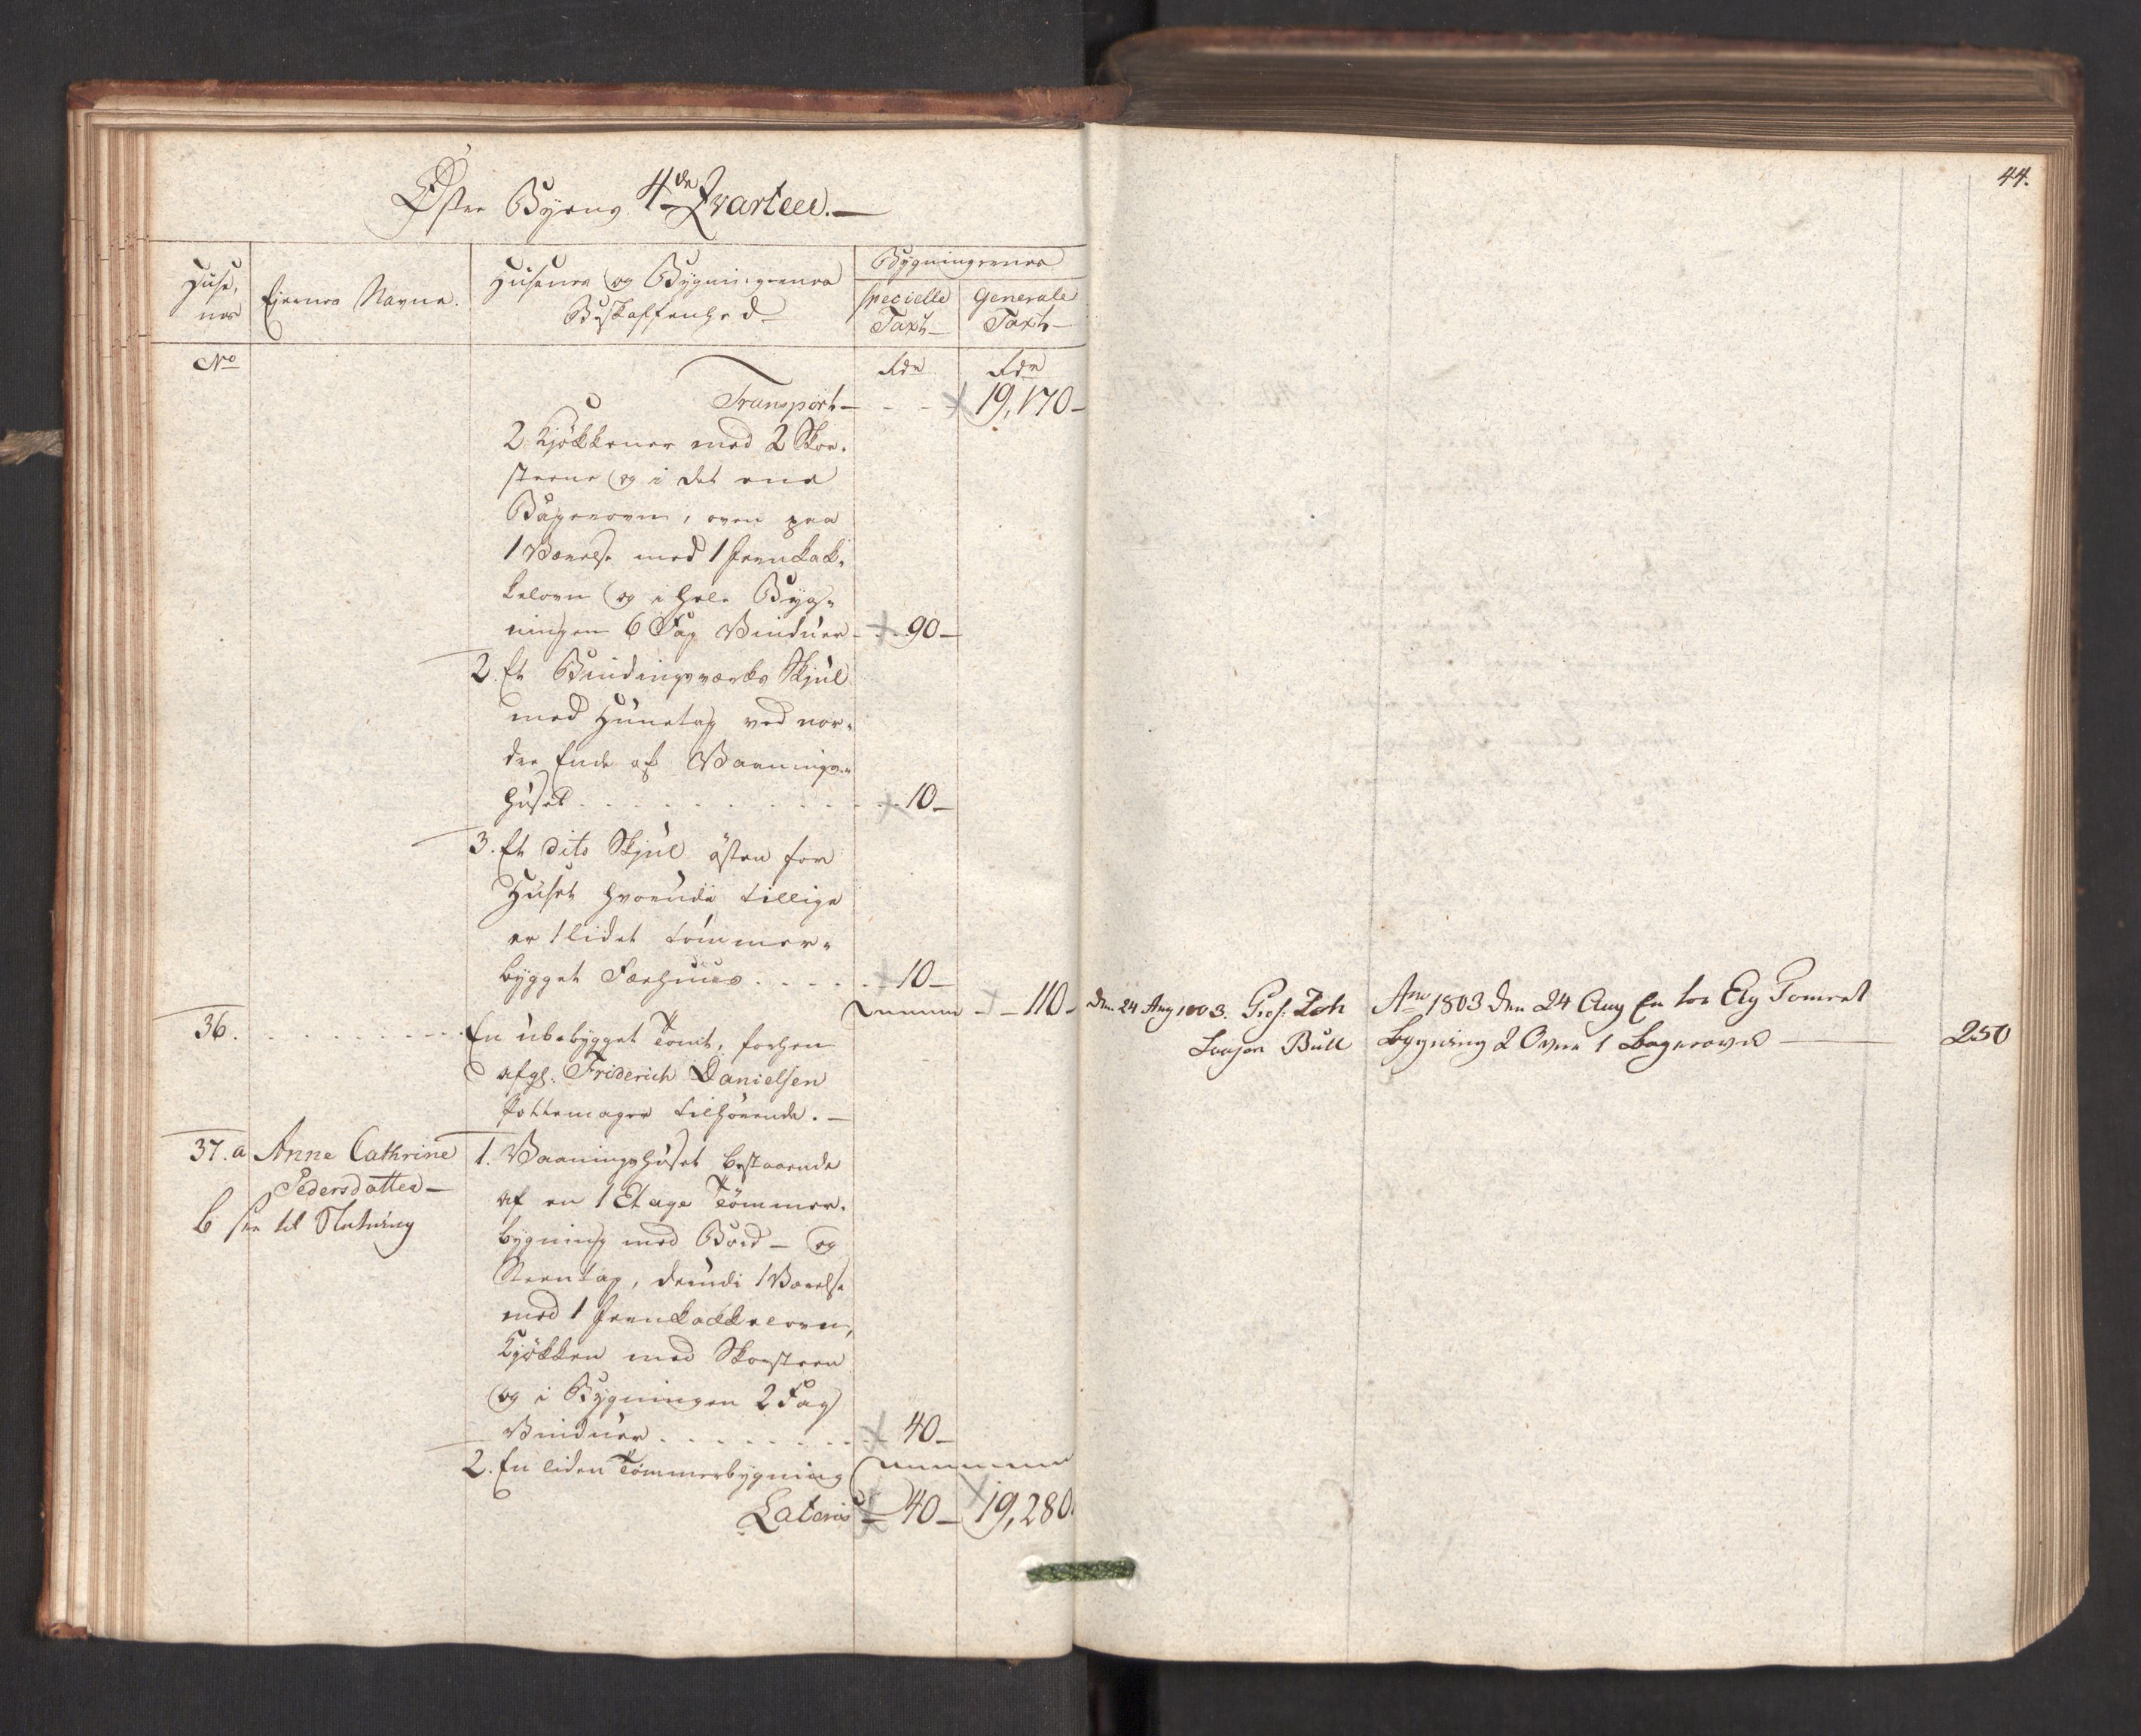 Øster Byens 4de Qvarteer.
Huse-
nes
Ejernes Navne.
Husenes og Bygningernes
Beskaffenhed
Bygningernes
specielle
Taxt
Generale
Taxt
No
Rdr
Rdr
Transport - - 19,170-
2 Kjøkkener med 2 Skor-
steene og i det ene
Bagerovn, oven paa
1 Værelse med 1 Jernkak-
kelovn og i hele Byg-
ningen 6 Fag Vinduer - 90-
2. Et Bindingsværks Skjul
med Hunetag ved nor-
dre Ende af Vaanings-
huset . . . . 10-
3. Et dito Skjul østen for
Huset hvorudi tillige
er 1 lidet tømmer-
bygget Færhuus . . . . 10-
110-
36. . . . . En ubebygget Tomt, forhen
afg. Friderich Danielsen
Pottemager tilhørende. -
37. a Anne Cathrine
Pedersdatter -
b see til Slutning
1. Vaaningshuset bestaaende
af en 1 Etage Tømmer-
bygning med Bord- og
Steentag, derudi 1 Værelse
med 1 Jernkakkelovn,
Kjøkken med Skorsteen
og i Bygningen 2 Fag
Vinduer . . . . 40-
2. En liden Tømmerbygning
Lateris - 40- 19,280.
44.
den 24 Aug 1803.
Ano 1803 den 24 Aug En
Bull
Bygning 2 Ovne 1 Bagerovn - 250